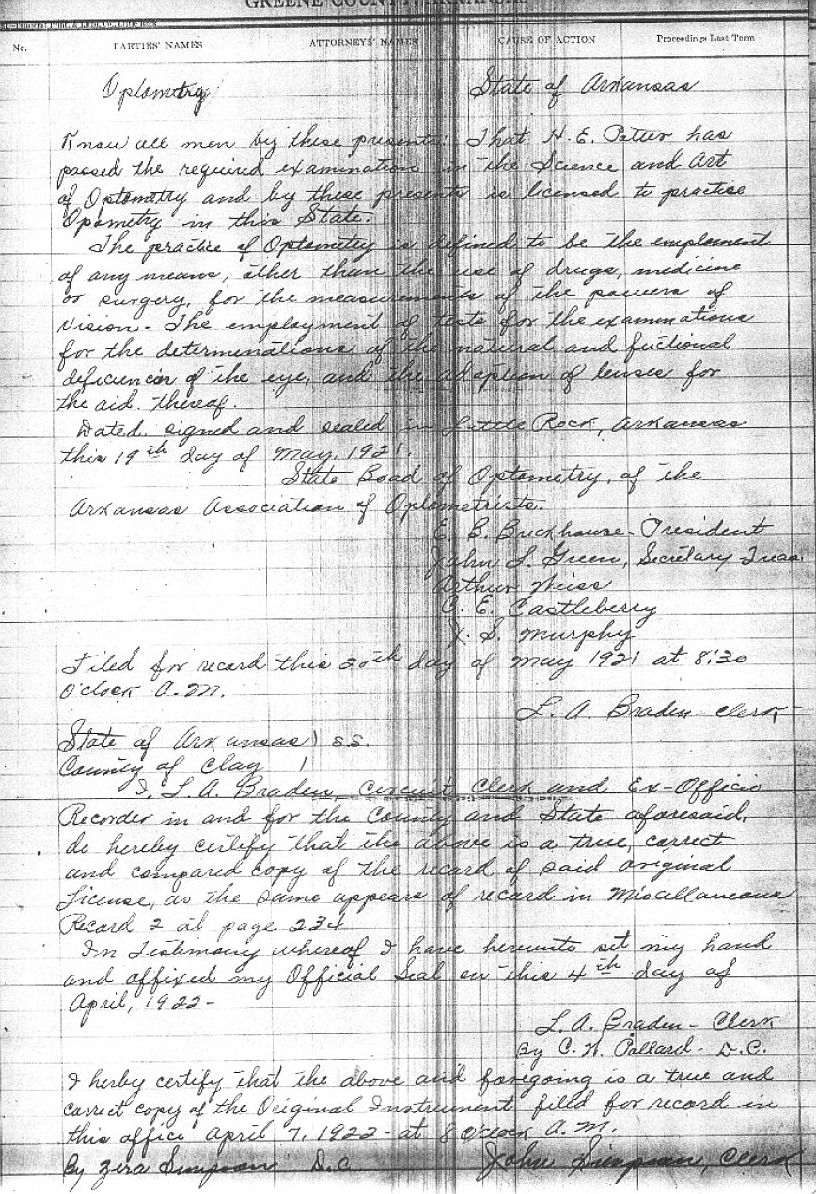 GREENE COUNTY, ARKANSAS
No. PARTIES' NAMES ATTORNEYS' NAMES CAUSE OF ACTION Proceedings Last Term
Optometry State of Arkansas
Know all men by these presents: That H. E. Petter has
passed the required examination in the Science and Art
of Optometry and by these presents is licensed to practice
Opometry in this State.
The practice of Optometry is defined to be the emploment
of any means, other than the use of drugs, medicine
or surgery, for the measurements of the powers of
vision. The employment of tests for the examinations
for the determinations of the natural and fuctional
deficiencies of the eye, and the adaption of lenses for
the aid thereof.
Dated, signed and sealed in Little Rock, Arkansas
this 19th day of May, 1921.
State Boad of Optometry, of the
Arkansas Association of Optometrists.
E. E. Buckhouse - President
John L. Green, Secretary Treas.
Arthur Weiss
C. E. Castleberry
S. Murphy
Filed for record this 30th day of May 1921 at 8:30
O'clock A.M.
L. A. Braden Clerk
State of Arkansas) s.s.
County of Clay )
I, L. A. Braden, Circuit Clerk and Ex-Officio
Recorder in and for the County and State aforesaid,
do hereby certify that the above is a true, correct
and compared copy of the record of said original
License, as the same appears of record in Miscellaneous
Record 2 at page 234
In Testimony whereof I have hereunto set my hand
and affixed my Official Seal on this 4th day of
April, 1922-
L. A. Braden - Clerk
By C. W. Pollard - D.C.
I herby certify that the above and foregoing is a true and
correct copy of the Original Instrument filed for record in
this office April 7, 1922 - at 8 O'clock A.M.
By Zera Simpson D.C. John Simpson, Clerk